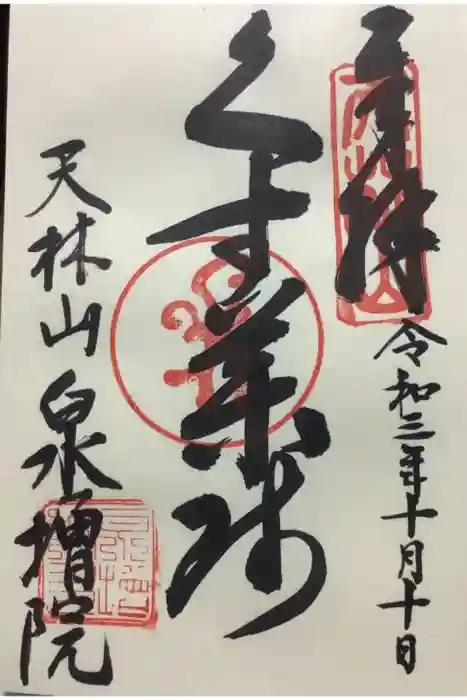 奉拝
令和三年十月十日
くす薬师
天林山泉増院